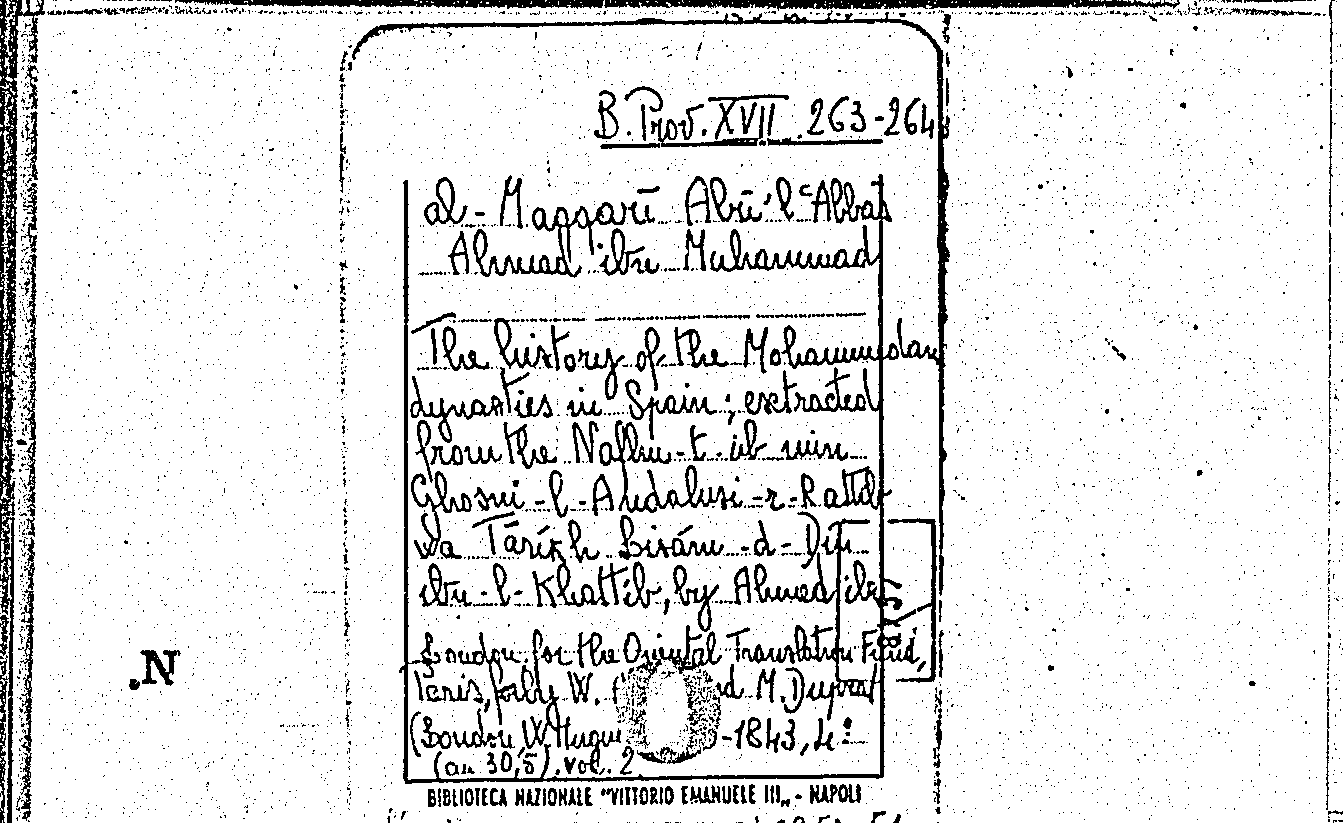 B. Prov. XVII. 263-264
al-Maqqarī Abū'l ʿAbbas
Ahmad ibn Muhammad
The history of the Mohammedan
dynasties in Spain; extracted
from the Nafhu-t-tib min
Ghosni-l-Andalusi-r-Rattib
Wa Tārīkh Lisānu-d-Din
ibn-l-Khattib, by Ahmed ibn
London for the Oriental Translation Fund,
Paris, for by W. M. Duprat
(London W. Hugu -1843, 4°
(cm 30,5). vol. 2
BIBLIOTECA NAZIONALE "VITTORIO EMANUELE III„ - NAPOLI
N.